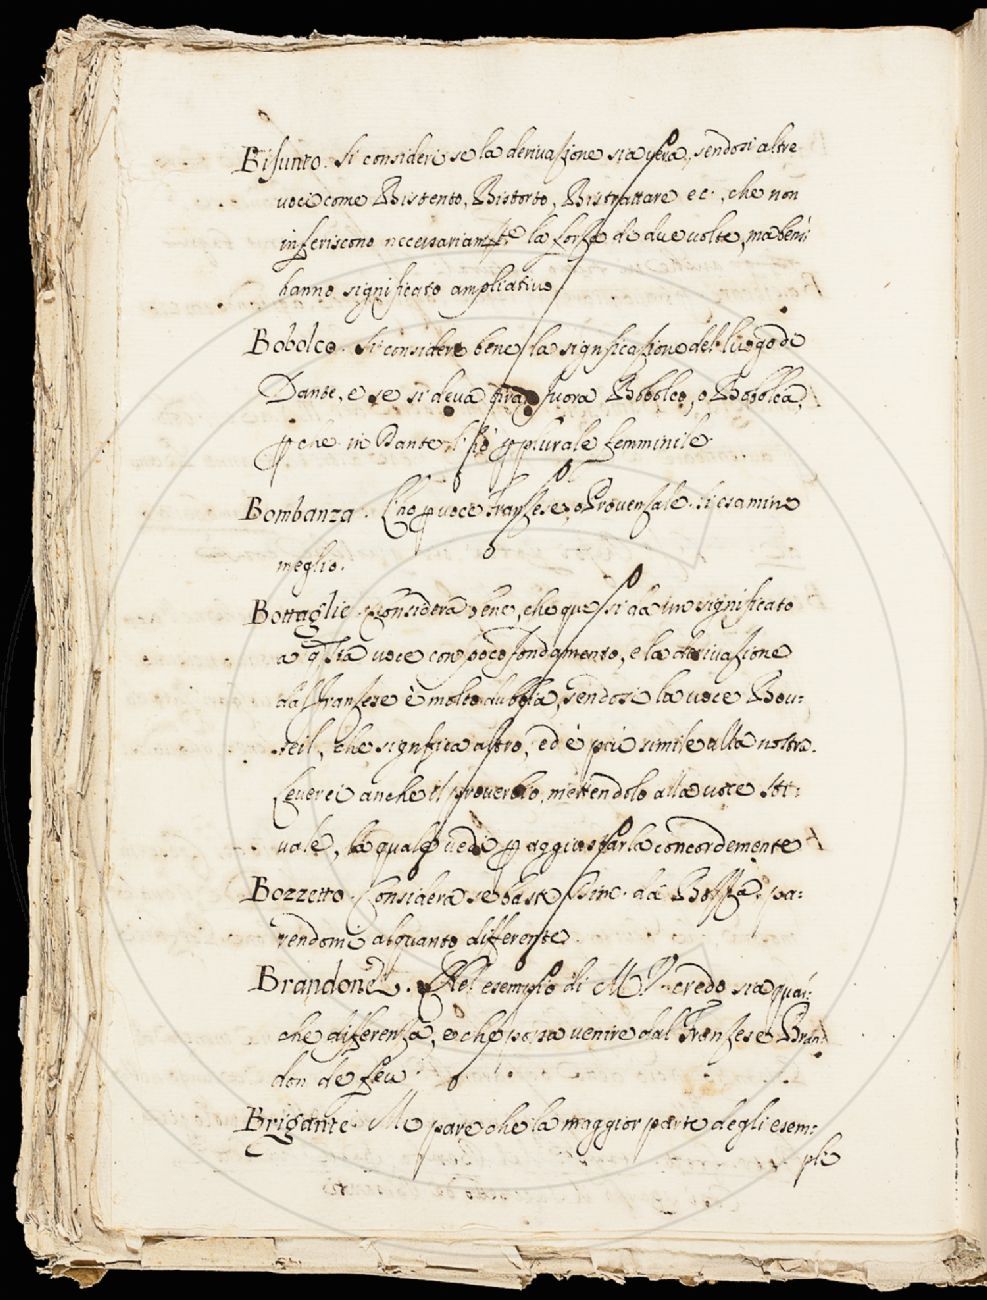 Bisunto. Si consideri se la derivazione sia vera, sendosi altre
voci come Bistento, Bistorto, Bistrattare ec., che non
inferiscono necessariamte la forza di due volte, ma bensi
hanno significato ampliativo
Bobolco. Si consideri bene la significazione del luogo di
Dante, e se si deva tirar fuora Bobolco, o Bobolca,
p che in Dante p plurale femminile.
Bombanza. L'ho p voce Franzese, o Provenzale. si esamini
meglio.
Bottaglie. Considera bene, che que si dà un significato
a qsta voce con poco fondamento, e la derivazione
dal Franzese è molto dubbia, sendosi la voce Bou:
teil, che significa altro, ed è più simile alla nostra.
Leverei anche il proverbio, mettendolo alla voce Sti:
vale, la quale vedi p aggiustarla concordemente
Bozzetto. Considera se basti dim. da Bozza. pa:
rendomi alquanto differente.
Brandone. Nel esempio di M. V. credo sia qual:
che differenza, e che possa venire dal Franzese Bran
don de feu.
Brigante. Mi pare che la maggior parte degli esem:
pli